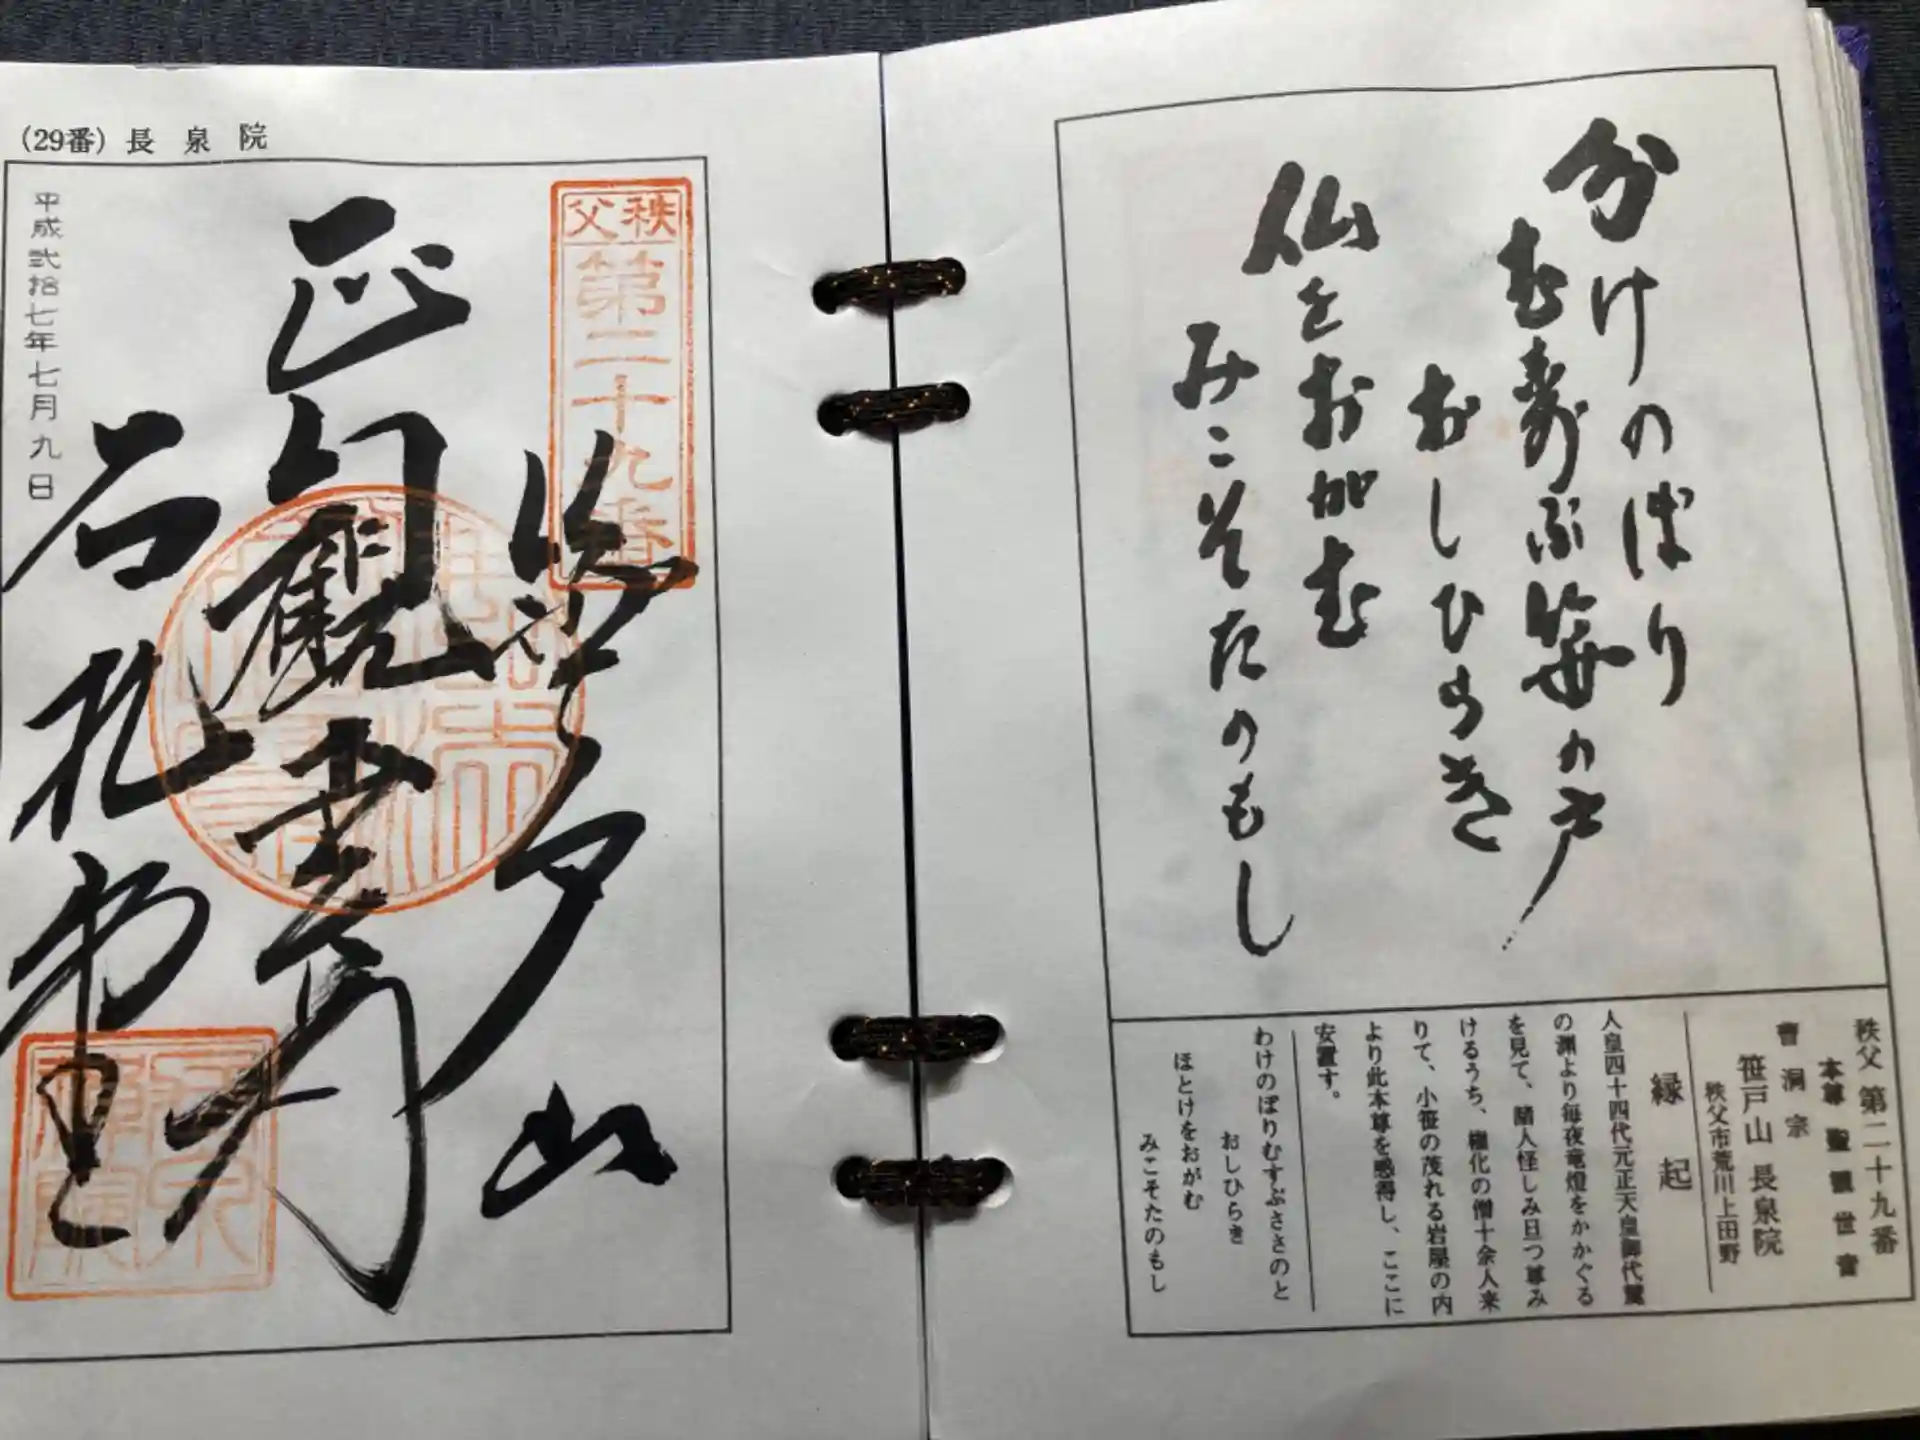 分けのぼり
む寿ぶ笹の戸
おしひらき
仏をおがむ
みこそたのもし
秩父 第二十九番
本尊 聖観世音
曹洞宗
笹戸山 長泉院
秩父市荒川上田野
縁起
人皇四十四代元正天皇御代鷲
の渊より毎夜竜燈をかかぐる
を見て、諸人怪しみ旦つ尊み
けるうち、権化の僧十余人来
りて、小笹の茂れる岩屋の内
より此本尊を感得し、ここに
安置す。
わけのぼりむすぶささのと
おしひらき
ほとけをおがむ
みこそたのもし
(29番) 長泉院
秩父
第二十九番
正
観世音
石札堂
山
平成弐拾七年七月九日